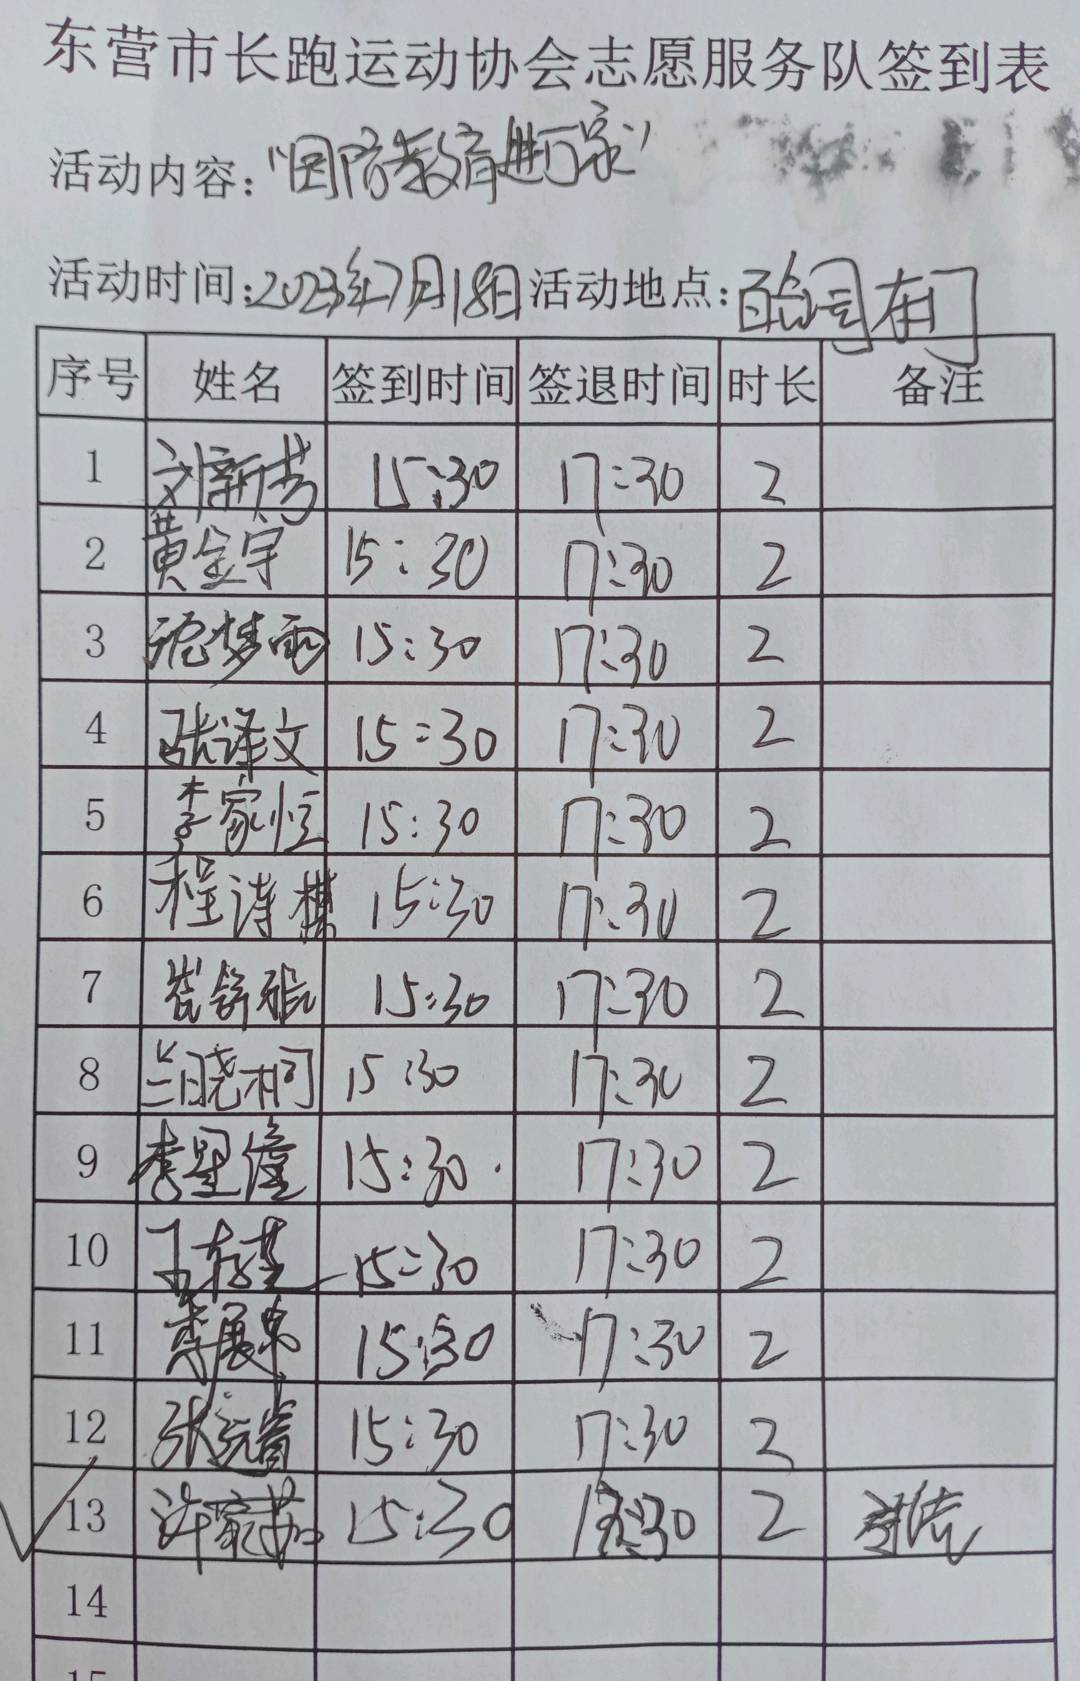 东营市长跑运动协会志愿服务队签到表
活动内容："国防教育进万家"
活动时间：2023年7月18日 活动地点：南门
序号 姓名 签到时间 签退时间 时长 备注
1 刘新芳 15:30 17:30 2
2 黄金宇 15:30 17:30 2
3 梦雨 15:30 17:30 2
4 张译文 15:30 17:30 2
5 李家恒 15:30 17:30 2
6 程诗棋 15:30 17:30 2
7 崔舒 15:30 17:30 2
8 兰晓桐 15:30 17:30 2
9 李星 15:30 17:30 2
10 王 15:30 17:30 2
11 李展 15:30 17:30 2
12 张 15:30 17:30 2
13 许家 15:30 17:30 2
14
15